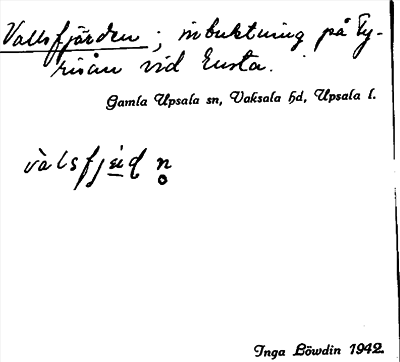 Vallsfjärden ; inbuktning på Fy-
risån vid Ensta.
Gamla Upsala sn, Vaksala hd, Upsala l.
Inga Löwdin 1942.